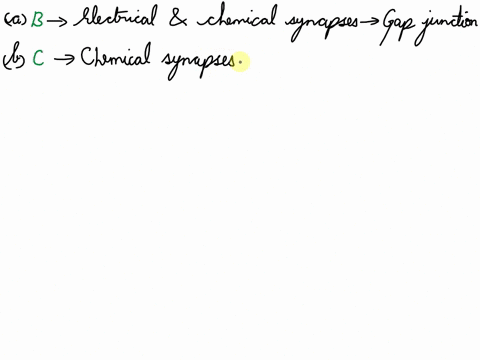 (a) B → Electrical & chemical synapses → Gap junction
(b) C → Chemical synapses.